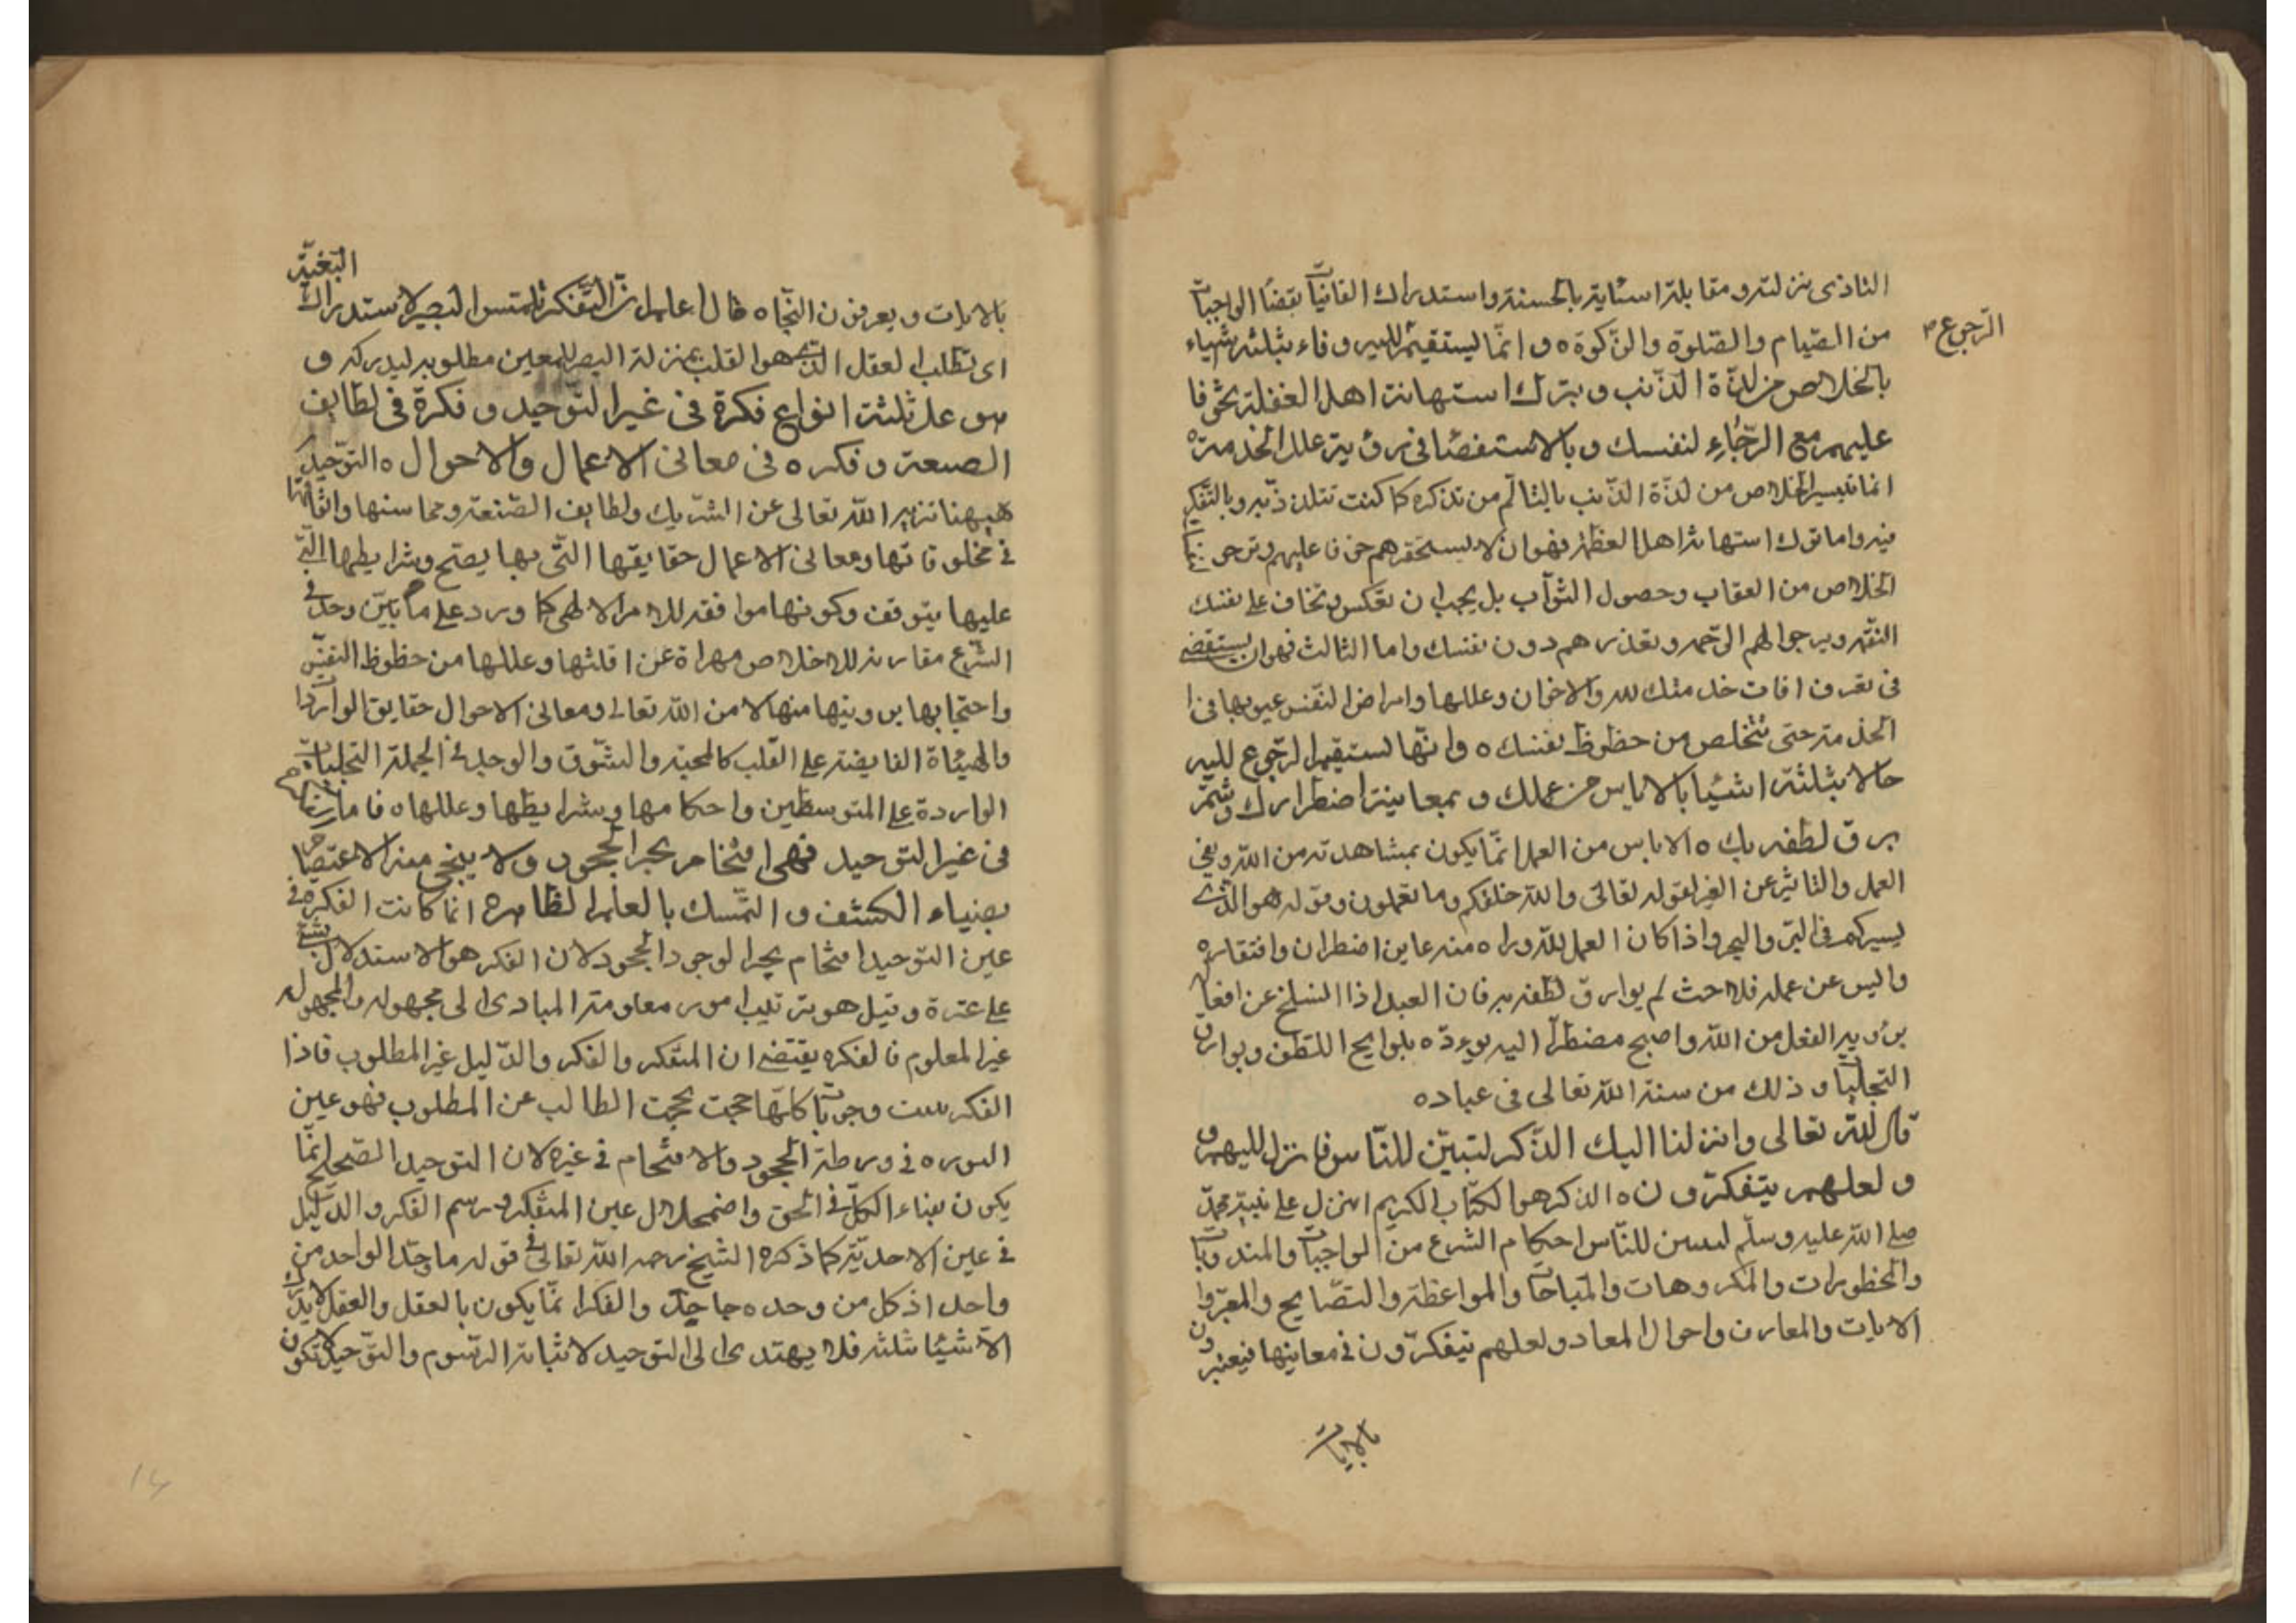 الثاذى بنزلته ومقابلة اسئاية بالحسنة واستدراك الفانيات بقضا الواجبات
من الصيام والصلوة والزكوة ه وانما يستقيم اليه وفاء بثلثة اشياء
الرجوع
بالخلاص من لذة الذنب وبترك استهانة اهل الغفلة تخوفا
عليهم مع الرجاء لنفسك وبالاستقصا فى رؤية علل الخدمة
انما تيسير الخلاص من لذة الذنب بالتألم من تذكره كما كنت تتلذذ به وبالتفكر
فيه واما ترك استهانة اهل الغفلة فهو ان لا يستحقرهم خوفا عليهم وترجى
الخلاص من العقاب وحصول الثواب بل يجب ان تعكس وتخاف على نفسك
النقمه ويرجو لهم الرحمه وتعذرهم دون نفسك واما الثالث فهو ان يستقصى
فى تعرف افات خدمتك لله والاخوان وعللها وامراض النفس عيوبها فى
الخدمة حتى تتخلص من حظوظ نفسك ه وانما يستقيم الرجوع اليه
حالا بثلثة اشيا بالاياس من عملك وبمعاينة اضطرارك وشم
برق لطفه بك ه الاياس من العمل انما يكون بمشاهدته من الله ونفى
العمل والتاثير عن الغير لقوله تعالى والله خلقكم وما تعملون وقوله هو الذى
يسيركم فى البر والبحر واذا كان العمل لله وراه منه عاين اضطراره وافتقاره
وايس عن عمله فلاحت له بوارق لطفه به فان العبد اذا انسلخ عن افعاله
برؤية الفعل من الله واصبح مضطرا اليه بلوايح اللطف وبوارق
التجليات وذلك من سنة الله تعالى فى عباده
قال الله تعالى وانزلنا اليك الذكر لتبين للناس ما نزل اليهم
ولعلهم يتفكرون ه الذكر هو الكتاب الكريم انزل على نبيه محمد
صلى الله عليه وسلم ليبين للناس احكام الشرع من الواجبات والمندوبات
والمحظورات والمكروهات والمباحات والمواعظة والنصايح والعبر و
الايات والمعارف واحوال المعاد ولعلهم يتفكرون فى معاينها فيعتبرون
بالايات
بالايات ويعرفون النجاه قال اعلم ان التفكر تلمس البصيرة لاستدراك البغية
اى تطلب العقل الذى هو القلب بمنزلة البصر للمعين مطلوبه ليدركه و
هو على ثلثة انواع فكرة فى عين التوحيد وفكرة فى لطايف
الصنعة وفكره فى معانى الاعمال والاحوال ه التوحيد
ههنا تنزيه الله تعالى عن الشريك ولطايف الصنعة ومحاسنها واتقانها
فى مخلوقاتها ومعانى الاعمال حقايقها التى بها يصح وشرايطها التى
عليها يتوقف وكونها موافقه للامر الالهى كما ورد على ما بين وحد فى
الشرع مقارنة للاخلاص مبراة عن افاتها وعللها من حظوظ النفس
واحتجابها برويتها منها لا من الله تعالى ومعانى الاحوال حقايق الواردات
والهيئاة الفايضة على القلب كالمحبة والشوق والوجد فى الجملة التجليات
الواردة على المتوسطين واحكامها وشرايطها وعللها ه فاما
فى عين التوحيد فهى اقتحام بحر الجحود ولا ينجى منه الا الاعتصام
بضياء الكشف والتمسك بالعلم الظاهر ه انما كانت الفكرة فى
عين التوحيد اقتحام بحر الوجود الجحود لان الفكر هو الاستدلال بشئ
على غيره وقيل هو ترتيب امور معلومة المبادى الى مجهوله والمجهول
غير المعلوم فالفكر يقتضى ان المتفكر والفكر والدليل غير المطلوب فاذا
الفكر وجوبا كانها حجبت بحجبت الطالب عن المطلوب فهو عين
فى ورطة الجحود والاقتحام فى غيره لان التوحيد الصحيح انما
يكون بفناء الكل فى الحق واضمحلال عين المتفكر ورسم الفكر والدليل
فى عين الاحدية كما ذكره الشيخ رحمه الله تعالى فى قوله ما وحد الواحد من
واحد اذ كل من وحده جاحد والفكر انما يكون بالعقل والعقل لا يدرك
الا شيئا ثلثة فلا يهتدى الى التوحيد لاثباته الرسوم والتوحيد لا تكون
14